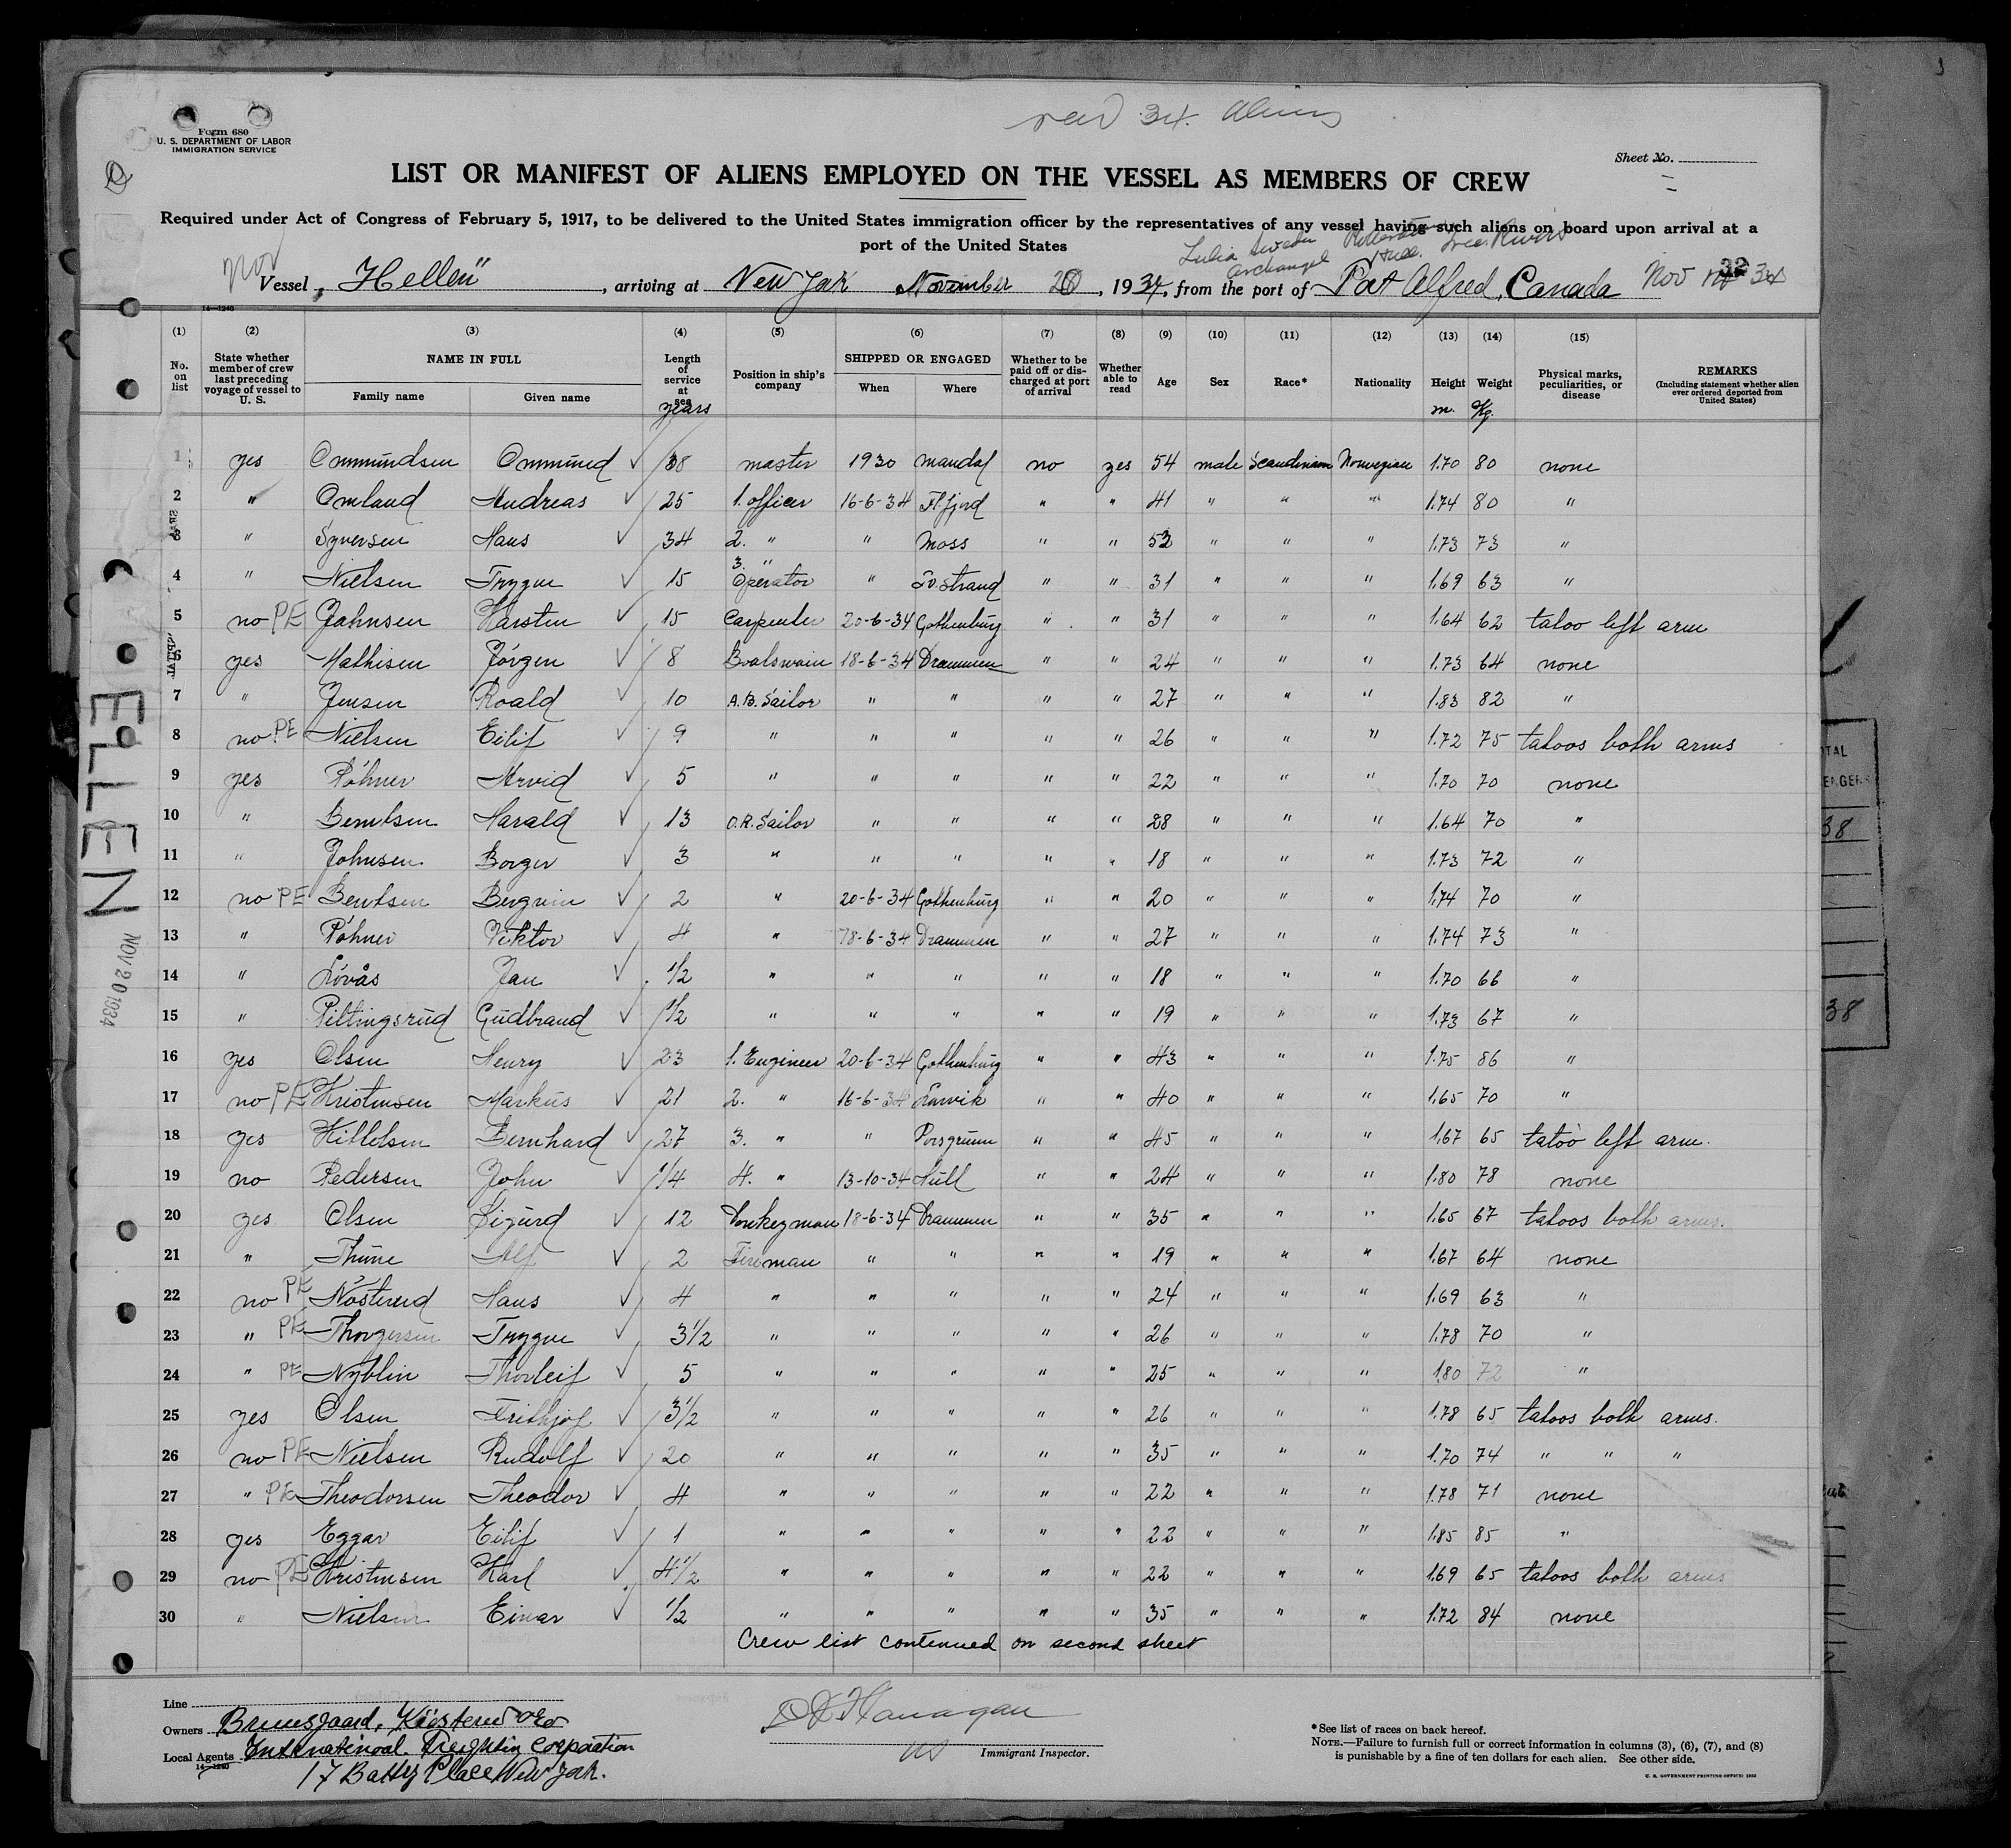 Form 680
U. S. DEPARTMENT OF LABOR
IMMIGRATION SERVICE
34 Aliens
Sheet No.
LIST OR MANIFEST OF ALIENS EMPLOYED ON THE VESSEL AS MEMBERS OF CREW
Required under Act of Congress of February 5, 1917, to be delivered to the United States immigration officer by the representatives of any vessel having such aliens on board upon arrival at a
port of the United States
Sweden Archangel Hull Rivers
Nor Vessel "Hellen", arriving at New York November 20, 1934, from the port of Port Alfred, Canada Nov
14—1240
(1) (2) (3) (4) (5) (6) (7) (8) (9) (10) (11) (12) (13) (14) (15)
No. on list State whether member of crew last preceding voyage of vessel to U. S. NAME IN FULL Family name Given name Length of service at sea years Position in ship's company SHIPPED OR ENGAGED When Where Whether to be paid off or discharged at port of arrival Whether able to read Age Sex Race* Nationality Height m. Weight Kg. Physical marks, peculiarities, or disease REMARKS (Including statement whether alien ever ordered deported from United States)
1 yes Ommundsen Ommund 38 master 1930 Mandal no yes 54 male Scandinian Norwegian 1.70 80 none
2 " Omland Andreas 25 1. officer 16-6-34 Fl.fjord " " 41 " " " 1.74 80 "
3 " Syversen Hans 34 2. " " Moss " " 52 " " " 1.73 73 "
4 " Nielsen Trygve 15 3. " Operator " Strand " " 31 " " " 1.69 63 "
5 no PE Johnsen Karsten 15 Carpenter 20-6-34 Gothenburg " " 31 " " " 1.64 62 tatoo left arm
6 yes Mathisen Jörgen 8 Boatswain 18-6-34 Drammen " " 24 " " " 1.73 64 none
7 " Jensen Roald 10 A.B. Sailor " " " " 27 " " " 1.83 82 "
8 no PE Nielsen Eilif 9 " " " " " 26 " " " 1.72 75 tatoos both arms
9 yes Pöhner Arvid 5 " " " " " 22 " " " 1.70 70 none
10 " Berntsen Harald 13 O.R. Sailor " " " " 28 " " " 1.64 70 "
11 " Johnsen Borger 3 " " " " " 18 " " " 1.73 72 "
12 no PE Berntsen Bergvin 2 " 20-6-34 Gothenburg " " 20 " " " 1.74 70 "
13 " Pöhner Viktor 4 " 18-6-34 Drammen " " 27 " " " 1.74 73 "
14 " Lövås Jan 1/2 " " " " " 18 " " " 1.70 66 "
15 " Piltingsrud Gudbrand 1/2 " " " " " 19 " " " 1.73 67 "
16 yes Olsen Henry 23 1. Engineer 20-6-34 Gothenburg " " 43 " " " 1.75 86 "
17 no PE Kristensen Markus 21 2. " 16-6-34 Larvik " " 40 " " " 1.65 70 "
18 yes Kittelsen Bernhard 27 3. " " Porsgrunn " " 45 " " " 1.67 65 tatoo left arm.
19 no Pedersen John 1/4 4. " 13-10-34 Hull " " 24 " " " 1.80 78 none
20 yes Olsen Sigurd 12 Donkeyman 18-6-34 Drammen " " 35 " " " 1.65 67 tatoos both arms.
21 " Thune Alf 2 Fireman " " " " 19 " " " 1.67 64 none
22 no PE Nöstvend Hans 4 " " " " " 24 " " " 1.69 63 "
23 " PE Thorgersen Trygve 3 1/2 " " " " " 26 " " " 1.78 70 "
24 " PE Nyblin Thorleif 5 " " " " " 25 " " " 1.80 72 "
25 yes Olsen Frithjof 3 1/2 " " " " " 26 " " " 1.78 65 tatoos both arms.
26 no PE Nielsen Rudolf 20 " " " " " 35 " " " 1.70 74 " " "
27 " PE Theodorsen Theodor 4 " " " " " 22 " " " 1.78 71 none
28 yes Eggar Eilif 1 " " " " " 22 " " " 1.85 85 "
29 no PE Kristensen Karl 4 1/2 " " " " " 22 " " " 1.69 65 tatoos both arms
30 " Nielsen Einar 1/2 " " " " " 35 " " " 1.72 84 none
Crew list continued on second sheet
Line
Owners Bruusgaard, Kiösterud
Local Agents International Freighting Corporation
14—1240
17 Battery Place New York.
Flanagan
Immigrant Inspector.
*See list of races on back hereof.
NOTE.—Failure to furnish full or correct information in columns (3), (6), (7), and (8)
is punishable by a fine of ten dollars for each alien. See other side.
U. S. GOVERNMENT PRINTING OFFICE: 1932
ELLEN
NOV 20 1934
38
38